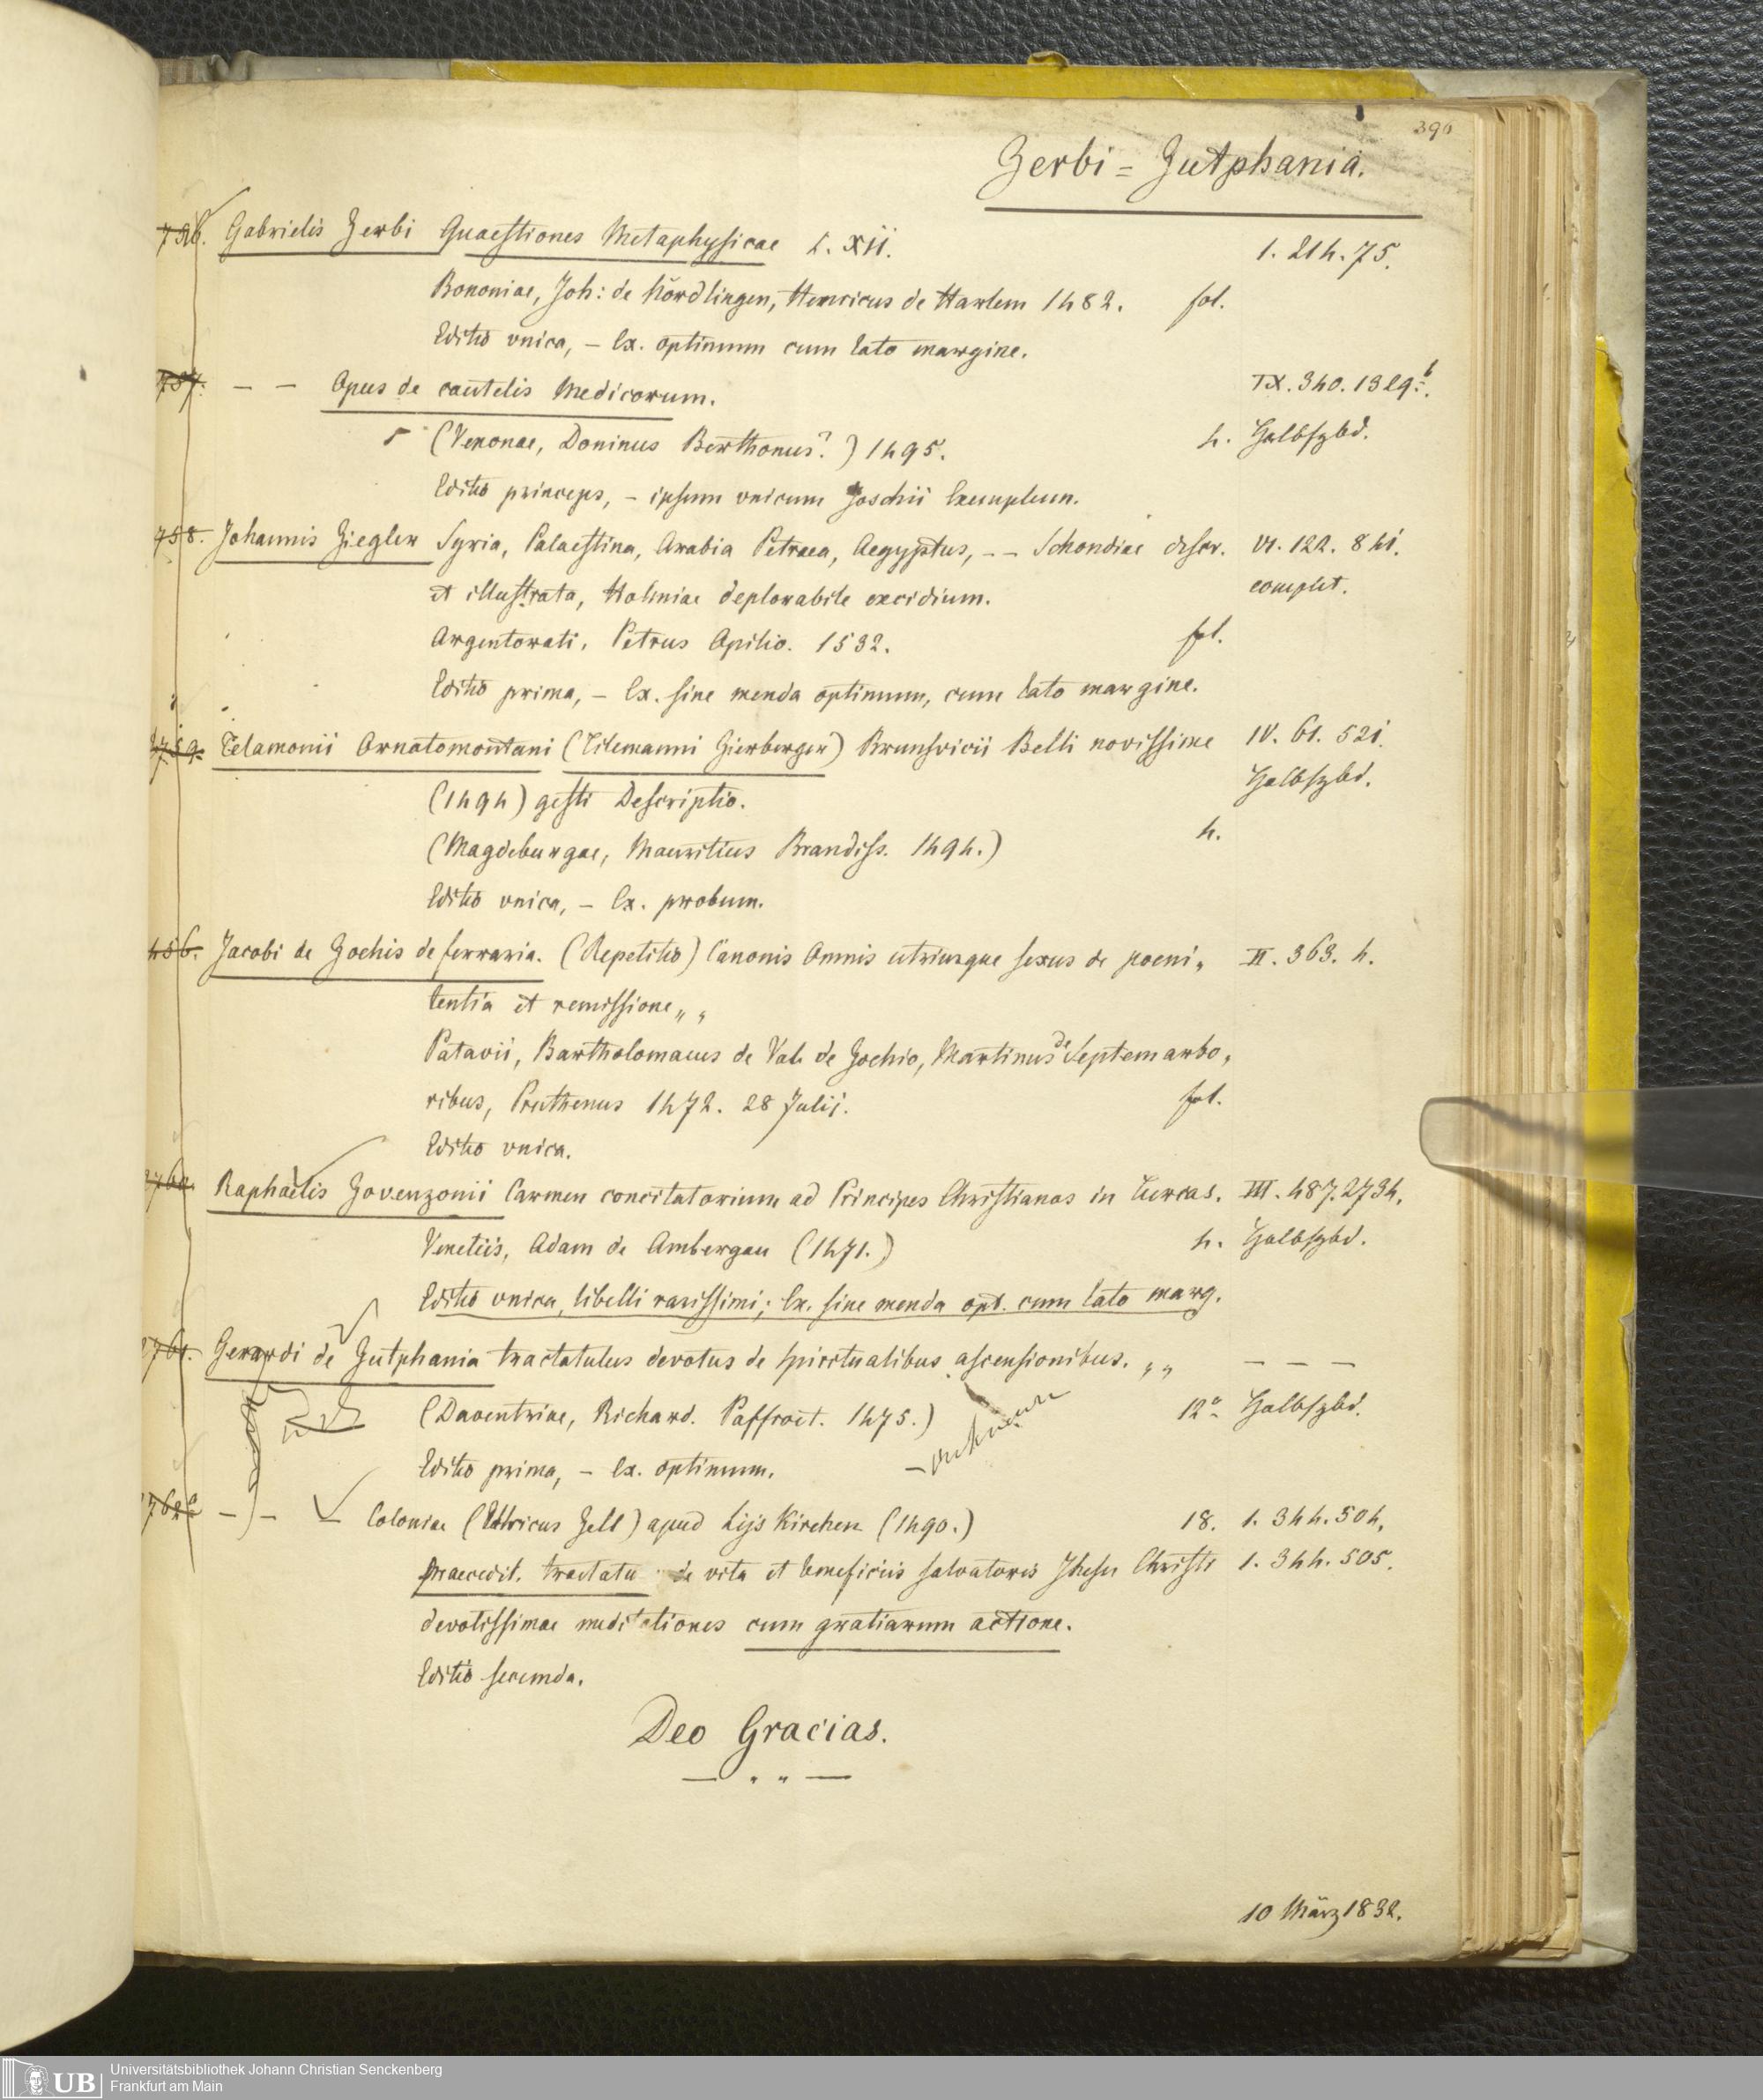 390
Zerbi = Zutphania.
756. Gabrielis Zerbi Quaestiones Metaphysicae L. XII. 1. 214. 75.
Bononiae, Joh: de Nördlingen, Henricus de Harlem 1482. fol.
Editio unica, – Ex. optimum cum lato margine.
757. – – Opus de cautelis Medicorum. IX. 340. 1329.b
(Venonae, Doninus Berthonus?) 1495. 4. Halbfzbd.
Editio princeps, – ipsum unicum Joschii Exemplum.
758. Johannis Ziegler Syria, Palaestina, Arabia Petraea, Aegyptus, – – Schondiae descr. VI. 122. 841.
et illustrata, Holmiae deplorabile excidium. complet.
Argentorati, Petrus Opilio. 1532. fol.
Editio prima, – Ex. sine menda optimum, cum lato margine.
759. Telamonii Ornatomontani (Tilemanni Zierberger) Brunsvicii Belli novissime IV. 61. 521.
(1494) gesti Descriptio. Halbfzbd.
(Magdeburgae, Mauritius Brandiss. 1494.) 4.
Editio unica, – Ex. probum.
456. Jacobi de Zochis de ferraria. (Repetitio) Canonis Omnis utriusque sexus de poeni„ II. 363. 4.
tentia et remissione„„
Patavii, Bartholomaeus de Val de Zochio, Martinus de Septem arbo„
ribus, Pruthenus 1472. 28 Julii. fol.
Editio unica.
760. Raphaelis Zovenzonii Carmen concitatorium ad Principes Christianos in Turcas. III. 487. 2734.
Venetiis, Adam de Ambergau (1471.) 4. Halbfzbd.
Editio unica, libelli rarissimi; Ex. sine menda opt. cum lato marg.
761. Gerardi de Zutphania tractatulus devotus de spiritualibus ascensionibus. „„ – – –
(Daventriae, Richard. Paffroet. 1475.) 12° Halbfzbd.
Editio prima, – Ex. optimum.
762 – – – Coloniae (Ulricus Zell) apud Lijs Kirchen (1490.) 18. 1. 344. 504.
praecedit. tractatu de vita et beneficiis salvatoris Jhesu Christi 1. 344. 505.
devotissimae meditationes cum gratiarum actione.
Editio secunda.
Deo Gracias.
10 März 1832.
UB Universitätsbibliothek Johann Christian Senckenberg
Frankfurt am Main